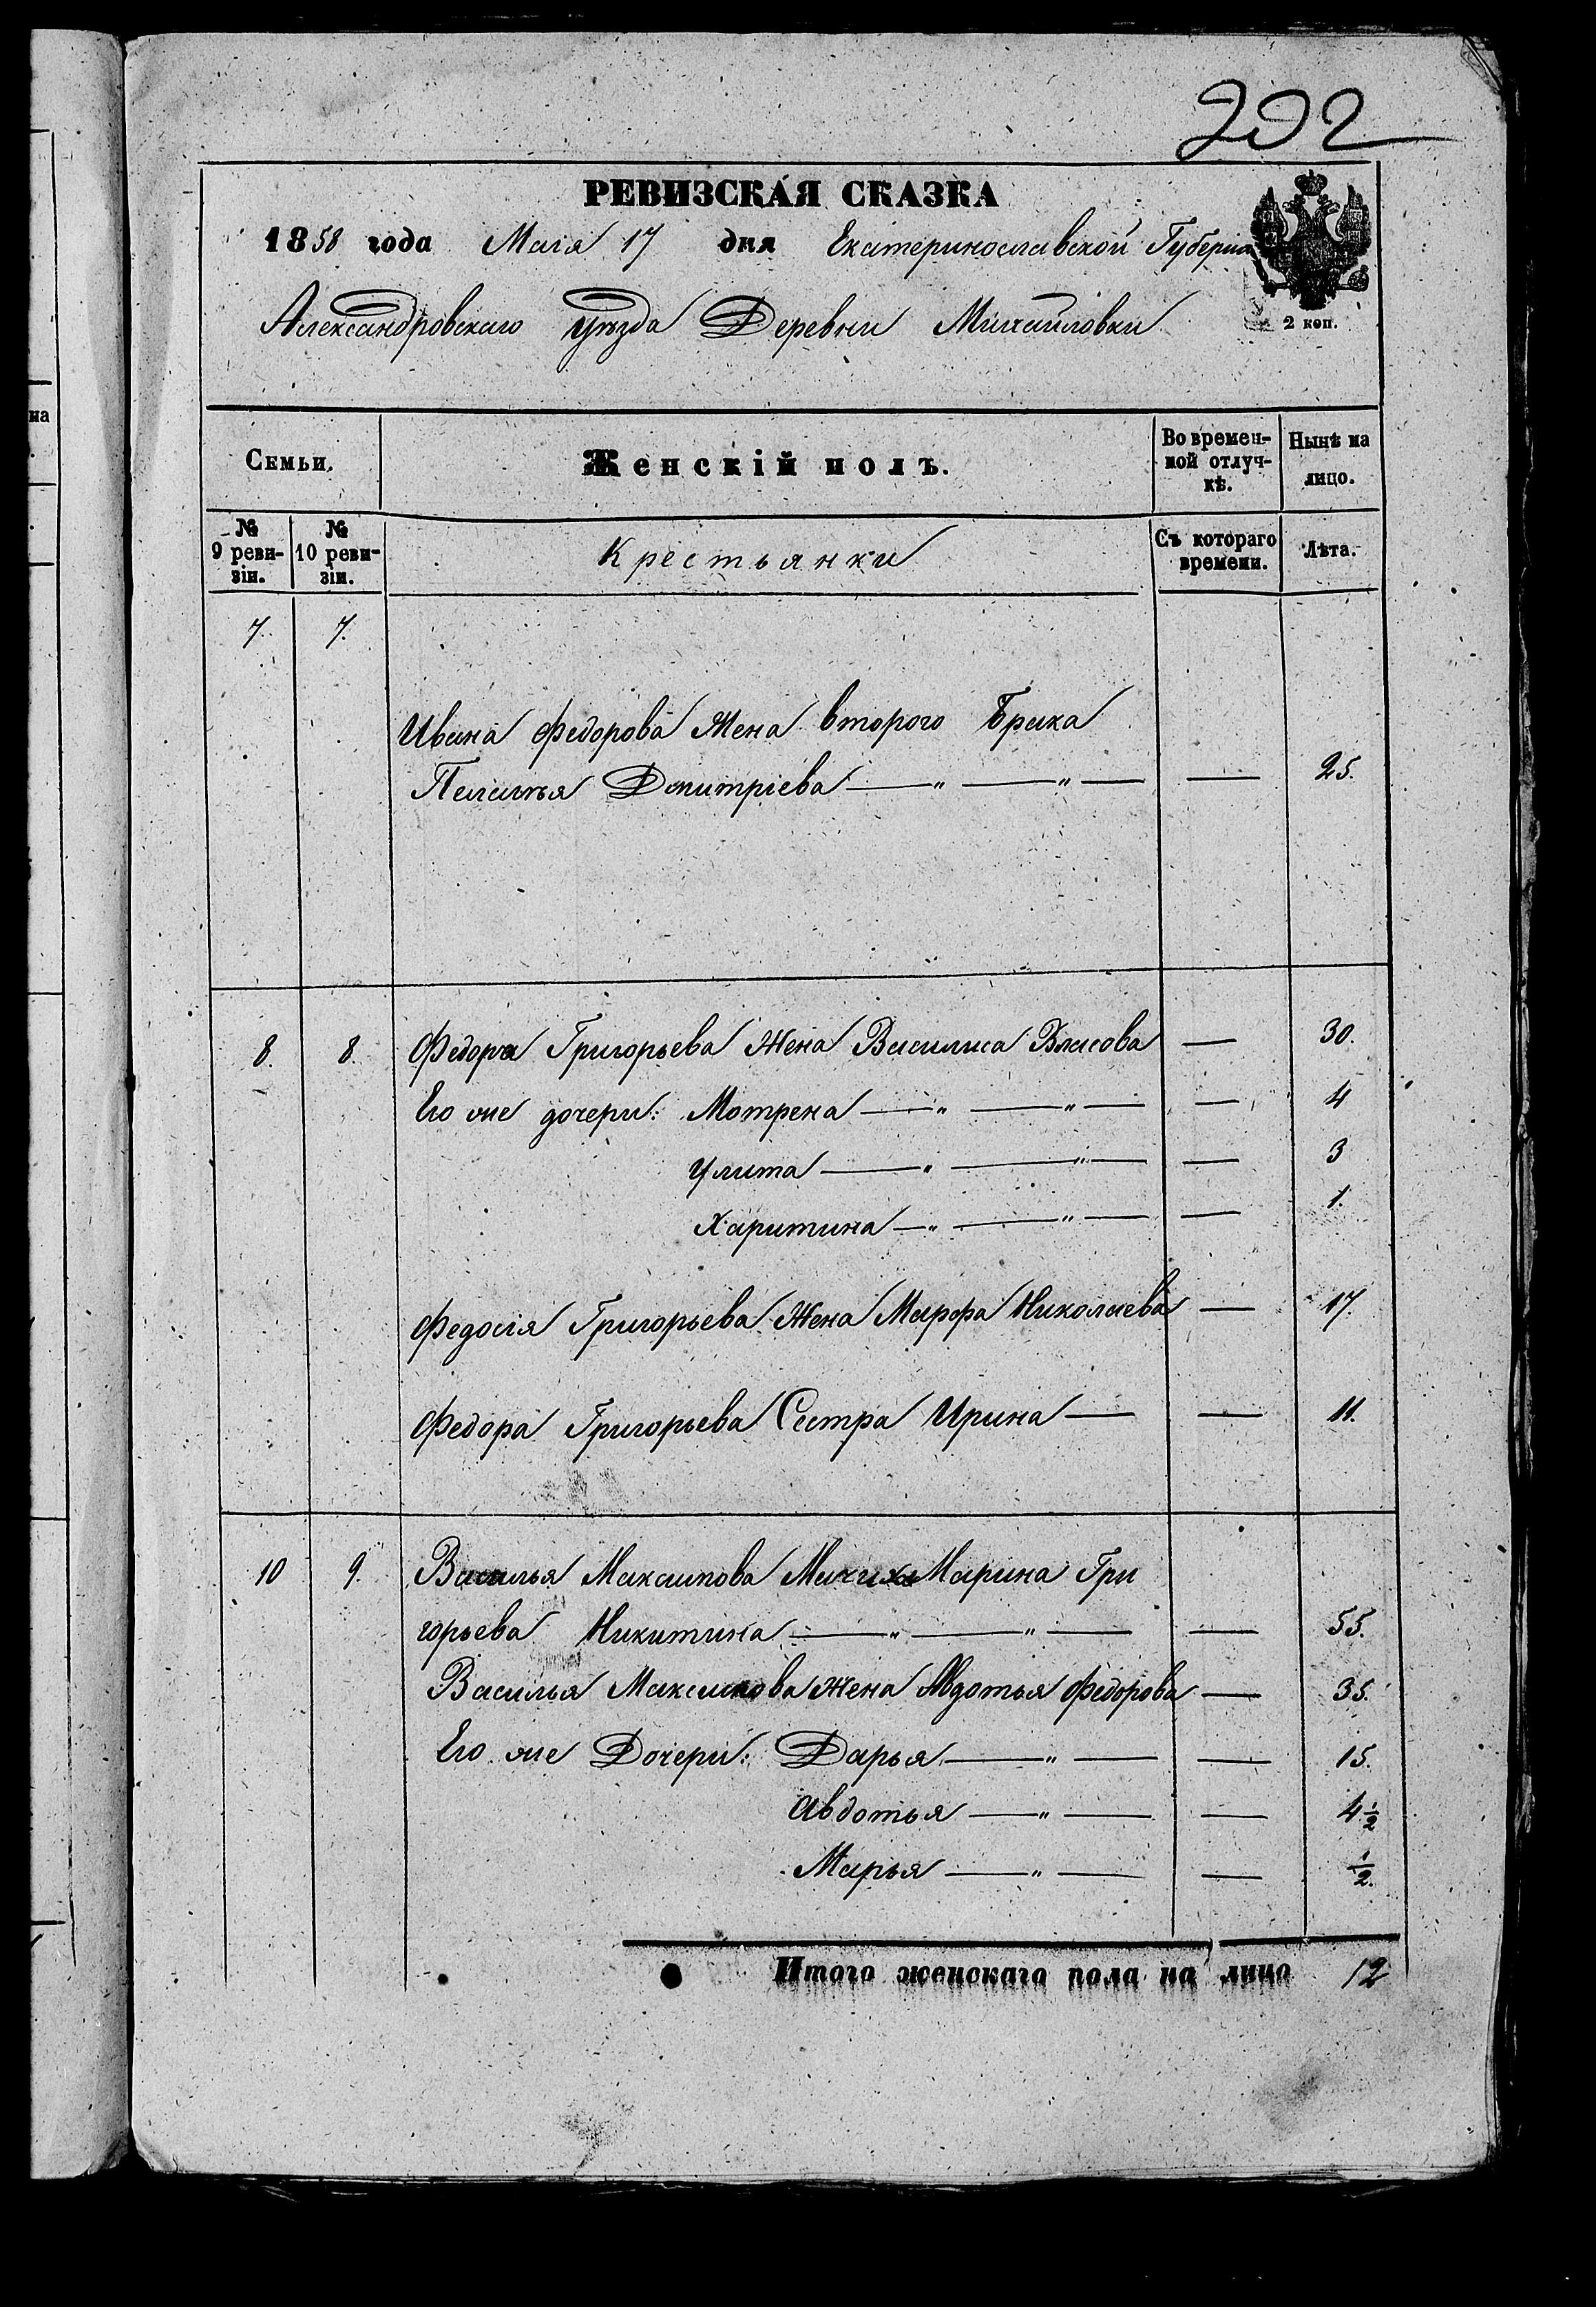 202
РЕВИЗСКАЯ СКАЗКА
1858 года Маія 17 дня Екатеринославской Губерніи
Александровскаго Уѣзда Деревни Михайловки
2 коп.
на
Семьи. Женскій полъ. Во времен-ной отлуч-кѣ. Нынѣ на лицо.
№ 9 реви-зіи. № 10 реви-зіи. Крестьянки Съ котораго времени. Лѣта.
7. 7.
Ивана Федорова Жена второго Брака
Пелагѣя Дмитріева — " — " — — 25.
8. 8. Федора Григорьева Жена Василиса Власова — 30.
Его же дочери: Мотрена — " — " — — 4
Улита — " — " — — 3
Харитина — " — " — — 1.
Федосія Григорьева Жена Марфа Николаева — 17.
Федора Григорьева Сестра Ирина — — 11.
10 9. Василья Максимова Мачиха Марина Гри
горьева Никитина — " — " — — 55.
Василья Максимова Жена Авдотья Федорова — 35.
Его же Дочери: Дарья — " — — 15.
Авдотья — " — — 4½
Марья — " — — ½.
Итого женскаго пола на лицо 12